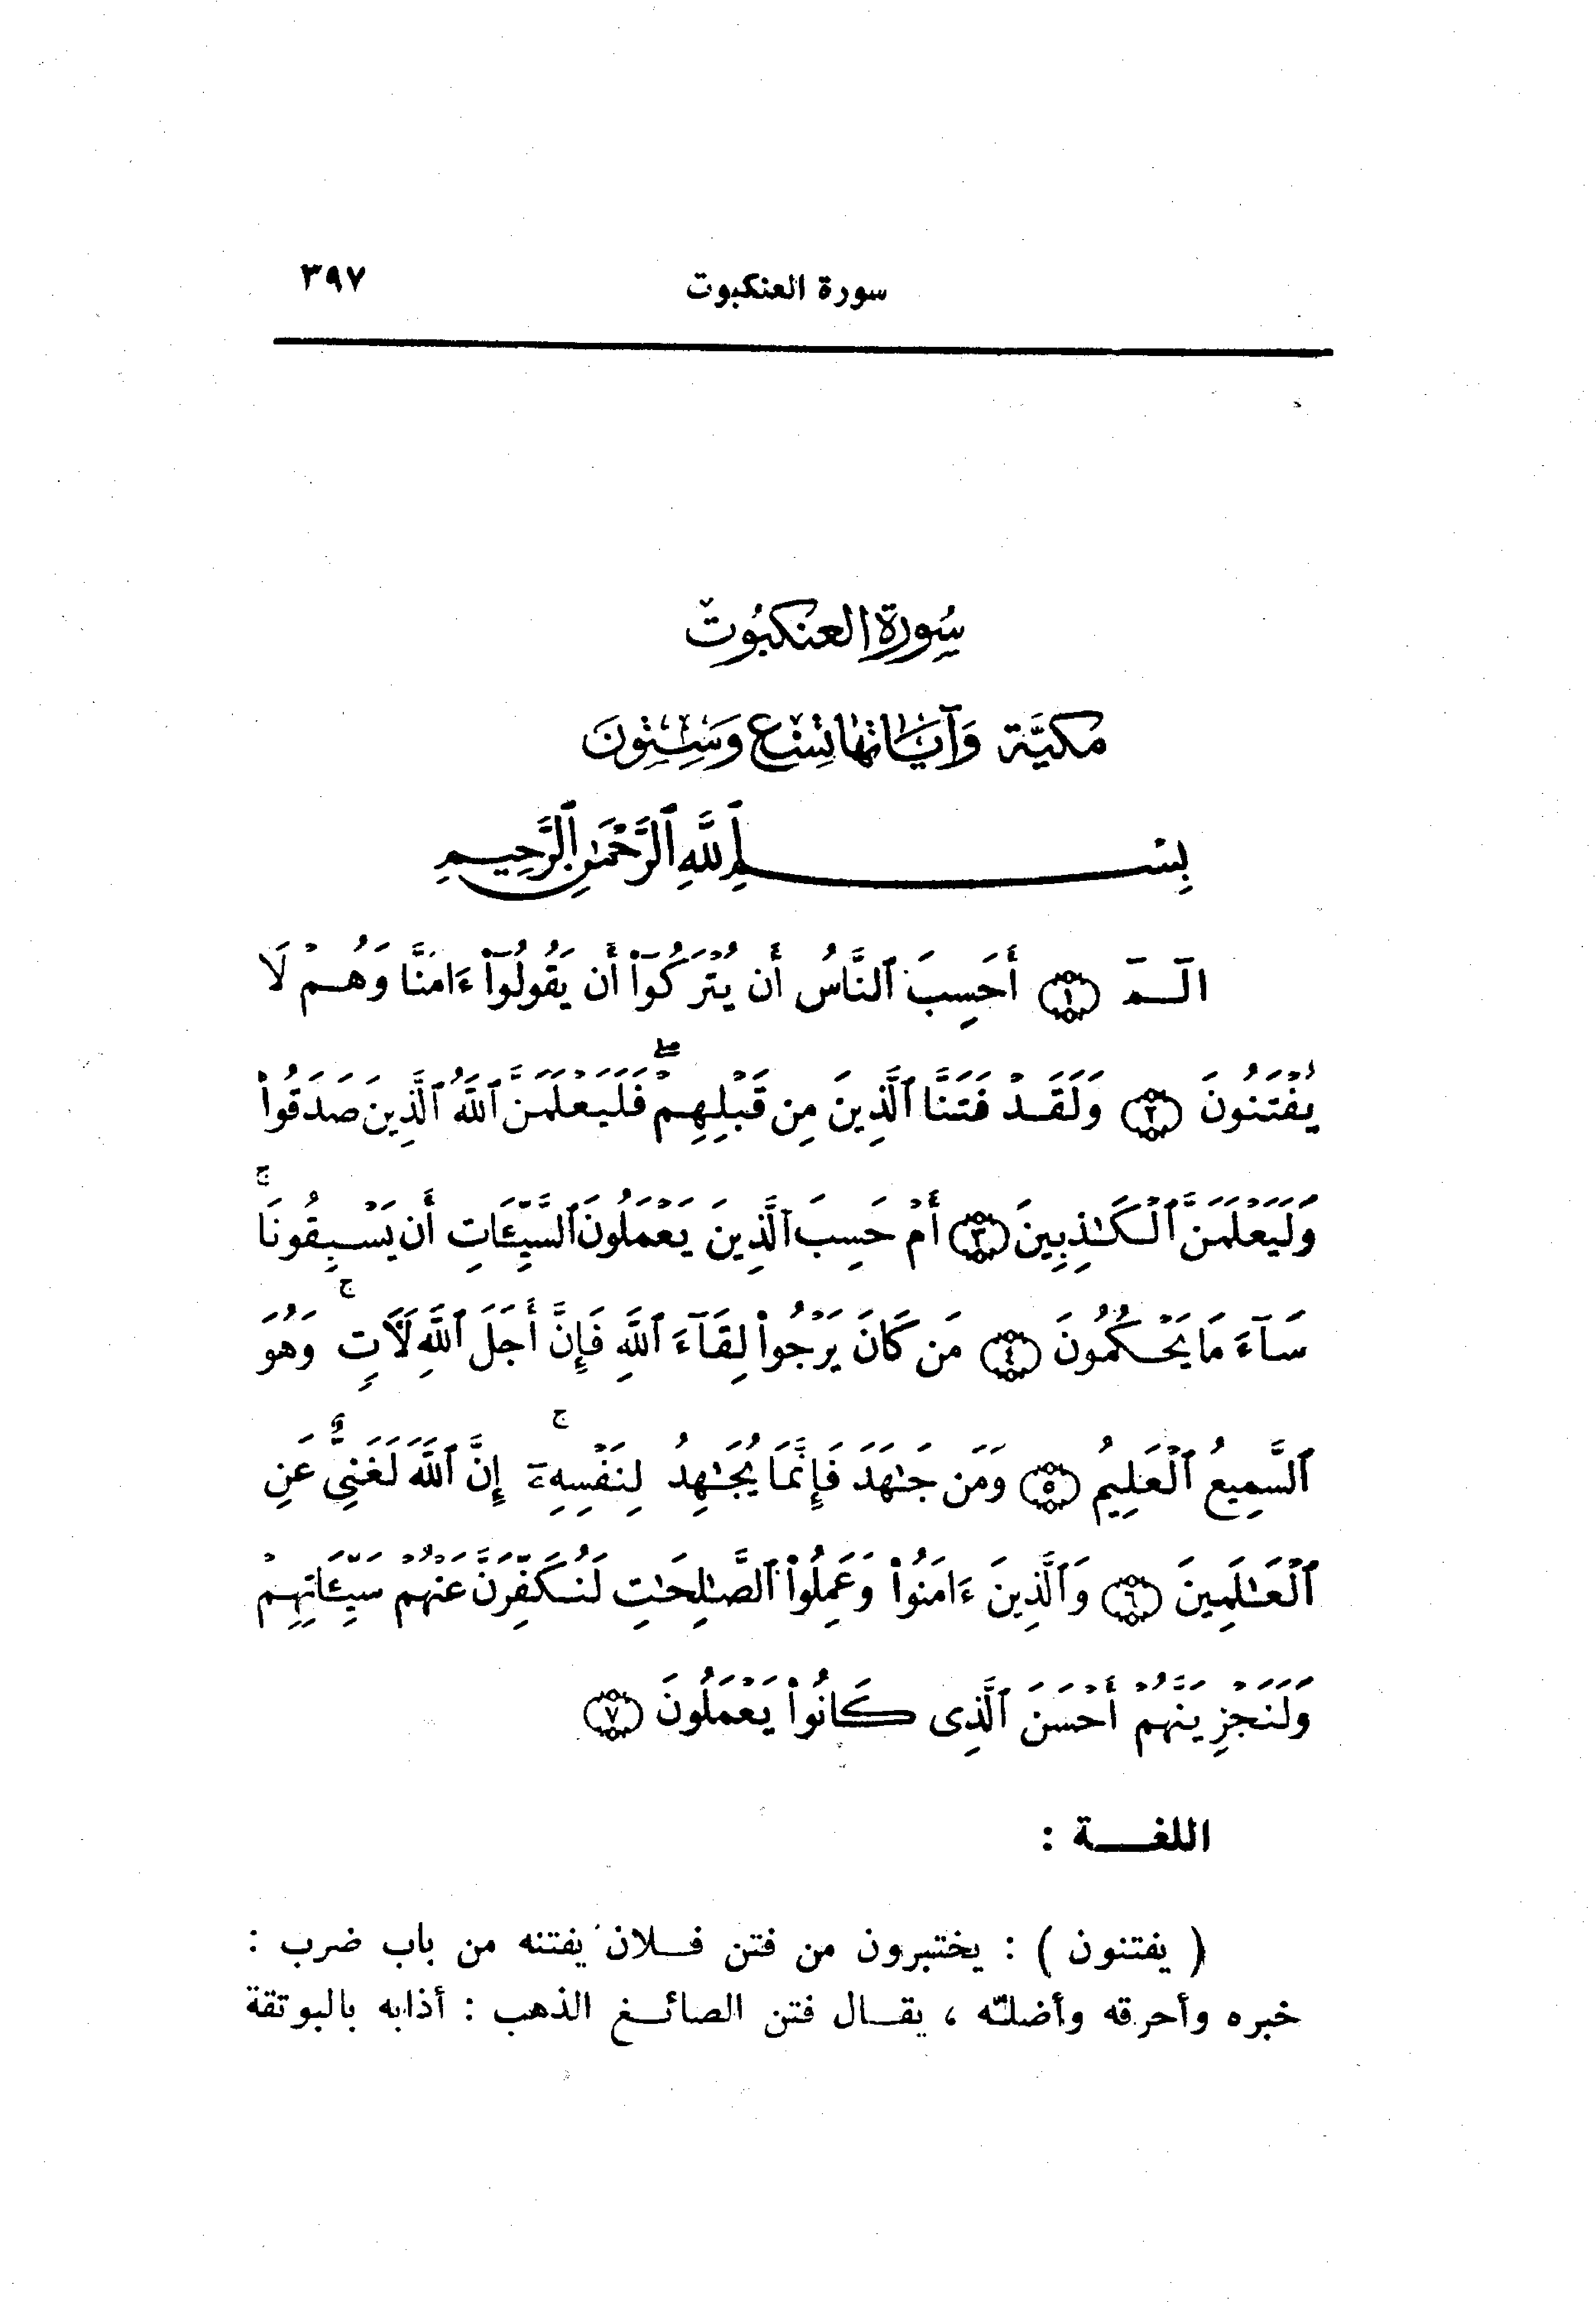 سورة العنكبوت ٣٩٧
سُورَة العنكبُوت
مكيَّة وَآيَاتها تِسْع وَسِتُّونَ
بِسْمِ ٱللَّهِ ٱلرَّحْمَـٰنِ ٱلرَّحِيمِ
الٓـمٓ ﴿١﴾ أَحَسِبَ ٱلنَّاسُ أَن يُتْرَكُوٓا۟ أَن يَقُولُوٓا۟ ءَامَنَّا وَهُمْ لَا
يُفْتَنُونَ ﴿٢﴾ وَلَقَدْ فَتَنَّا ٱلَّذِينَ مِن قَبْلِهِمْ ۖ فَلَيَعْلَمَنَّ ٱللَّهُ ٱلَّذِينَ صَدَقُوا۟
وَلَيَعْلَمَنَّ ٱلْكَـٰذِبِينَ ﴿٣﴾ أَمْ حَسِبَ ٱلَّذِينَ يَعْمَلُونَ ٱلسَّيِّـَٔاتِ أَن يَسْبِقُونَا ۚ
سَآءَ مَا يَحْكُمُونَ ﴿٤﴾ مَن كَانَ يَرْجُوا۟ لِقَآءَ ٱللَّهِ فَإِنَّ أَجَلَ ٱللَّهِ لَـَٔاتٍ ۚ وَهُوَ
ٱلسَّمِيعُ ٱلْعَلِيمُ ﴿٥﴾ وَمَن جَـٰهَدَ فَإِنَّمَا يُجَـٰهِدُ لِنَفْسِهِۦٓ ۚ إِنَّ ٱللَّهَ لَغَنِىٌّ عَنِ
ٱلْعَـٰلَمِينَ ﴿٦﴾ وَٱلَّذِينَ ءَامَنُوا۟ وَعَمِلُوا۟ ٱلصَّـٰلِحَـٰتِ لَنُكَفِّرَنَّ عَنْهُمْ سَيِّـَٔاتِهِمْ
وَلَنَجْزِيَنَّهُمْ أَحْسَنَ ٱلَّذِى كَانُوا۟ يَعْمَلُونَ ﴿٧﴾
اللغـــة :
( يفتنون ) : يختبرون من فتن فـلان يفتنه من باب ضرب :
خبره وأحرقه وأضلّه ، يقـال فتن الصائـغ الذهب : أذابه بالبوتقة